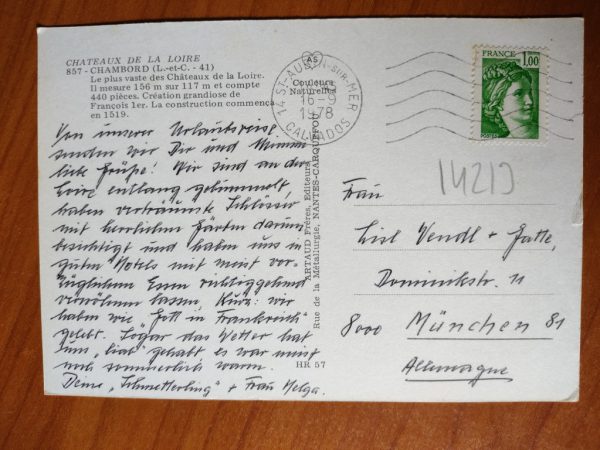 CHATEAUX DE LA LOIRE
857 - CHAMBORD (L.-et-C. - 41)
Le plus vaste des Châteaux de la Loire.
Il mesure 156 m sur 117 m et compte
440 pièces. Création grandiose de
François 1er. La construction commença
en 1519.
Von unserer Urlaubsreise
senden wir Dir und Mimm
liebe Grüße! Wir sind an der
Loire entlang gebummelt,
haben verträumte Schlösser
mit herrlichen Gärten darum
besichtigt und haben uns in
guten Hotels mit meist vor-
züglichem Essen richtiggehend
verwöhnen lassen. Kurz: wir
haben wie "Gott in Frankreich"
gelebt. Sogar das Wetter hat
uns "lieb" gehabt, es war meist
noch sommerlich warm.
Deine "Schmetterling" + Frau Helga.
AS
Couleurs
Naturelles
ARTAUD Frères, Editeurs
Rue de la Métallurgie, NANTES-CARQUEFOU
HR 57
14 ST-AUBIN-SUR-MER
16-9
1978
CALVADOS
FRANCE
1,00
14219
Frau
Lisl Vendl + Gatte,
Dominikstr. 11
8000 München 81
Allemagne